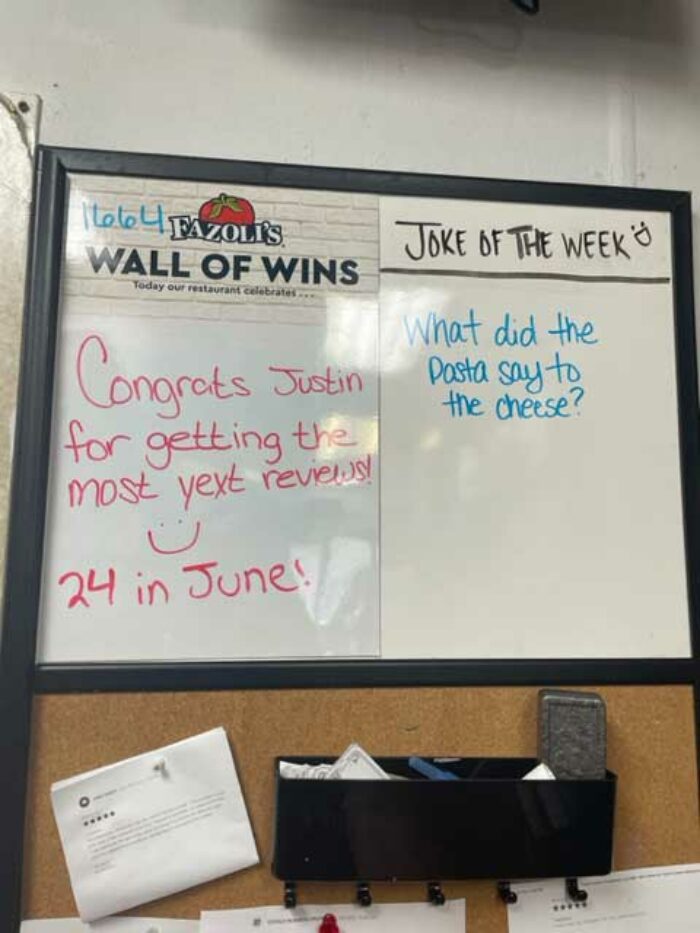 1664 FAZOLI'S
WALL OF WINS
Today our restaurant celebrates . . .
Congrats Justin
for getting the
most yext reviews!
24 in June!
JOKE OF THE WEEK
What did the
Pasta say to
the cheese?